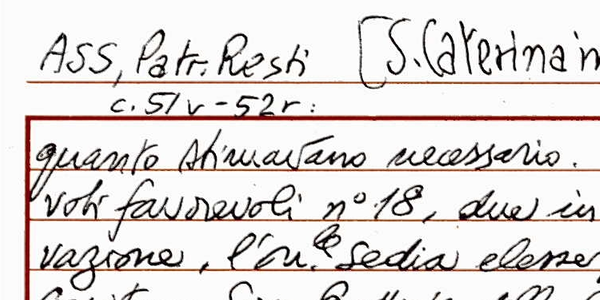 ASS, Patr. Resti [S. Caterina in
c. 51v - 52r:
quanto stimavano necessario.
voti favorevoli n° 18, due in
vazione, l'on.le Sedia elesse